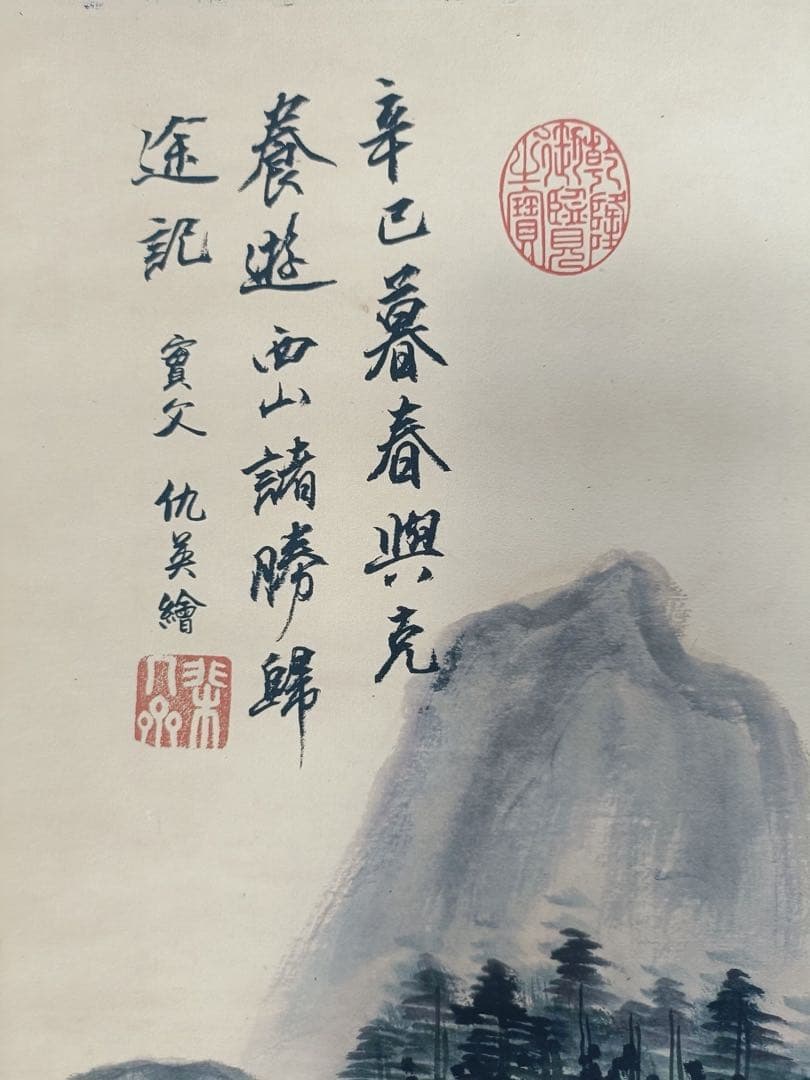 辛已暮春與克
養遊西山諸勝歸
途記
實父 仇英繪
乾隆
御覽
之寶